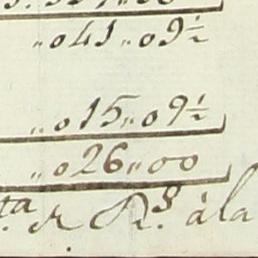 „041„09½
„015„09½
„026„00
ta. r Rs. àla